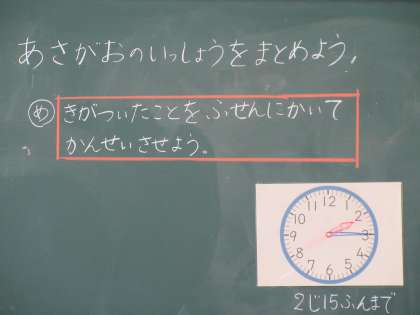 あさがおのいっしょうをまとめよう。
め きがついたことを、ふせんにかいて
かんせいさせよう。
12
11 1
10 2
9 3
8 4
7 5
6
2じ15ふんまで